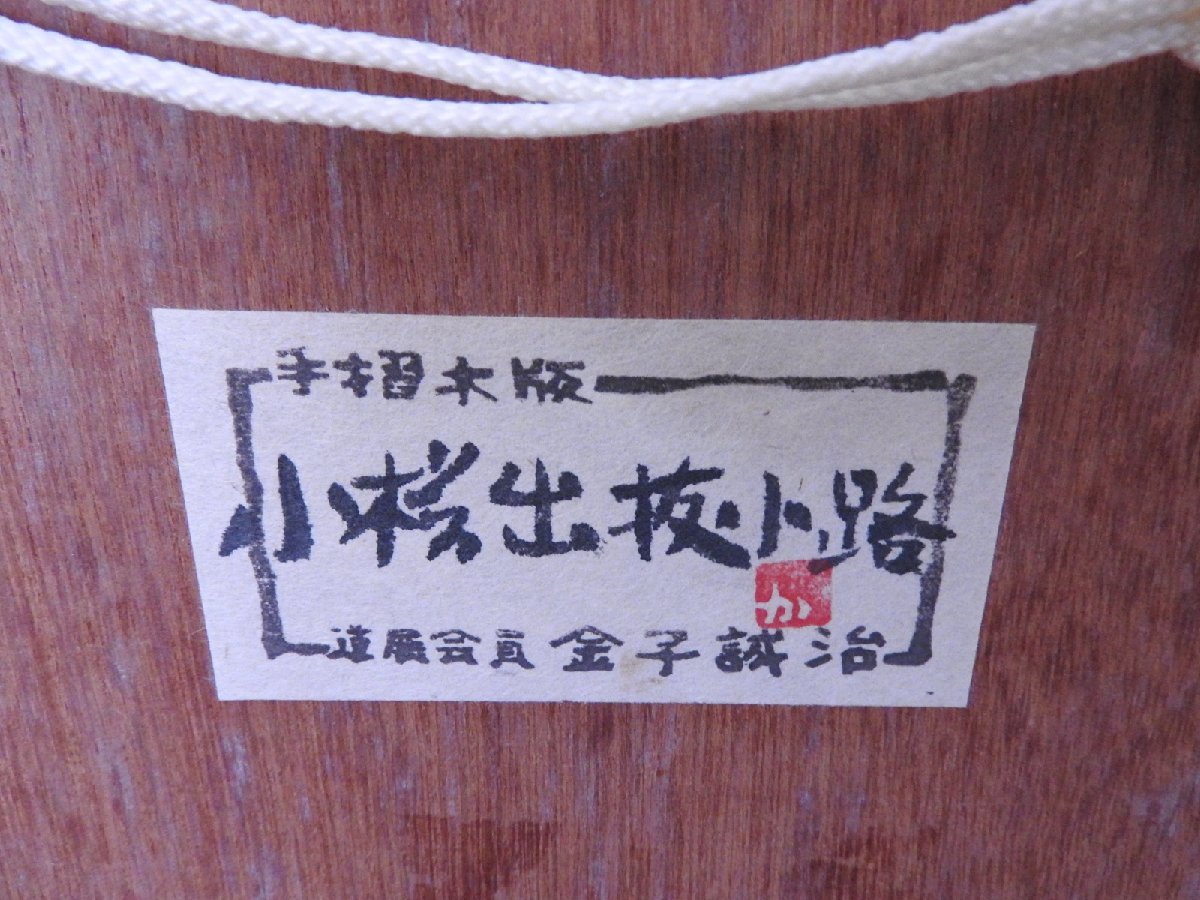 手摺木版
小樽出抜小路
か
道展会員 金子誠治